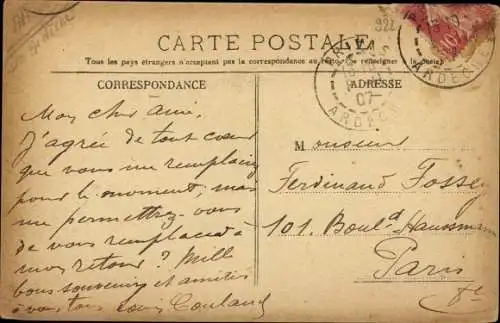 CARTE POSTALE
Tous les pays étrangers n'acceptant pas la correspondance au recto, se renseigner à la poste
CORRESPONDANCE
ADRESSE
Mon cher ami,
J'agrée de tout cœur
que vous me remplaciez
pour le moment, mais
me permettrez-vous
de vous remplacer à
mon retour ? Mille
bons souvenirs et amitiés
à vous tous
Monsieur
Ferdinand Fossey
101. Boul.d Haussmann
Paris
ARDECHE
07
ARDECHE